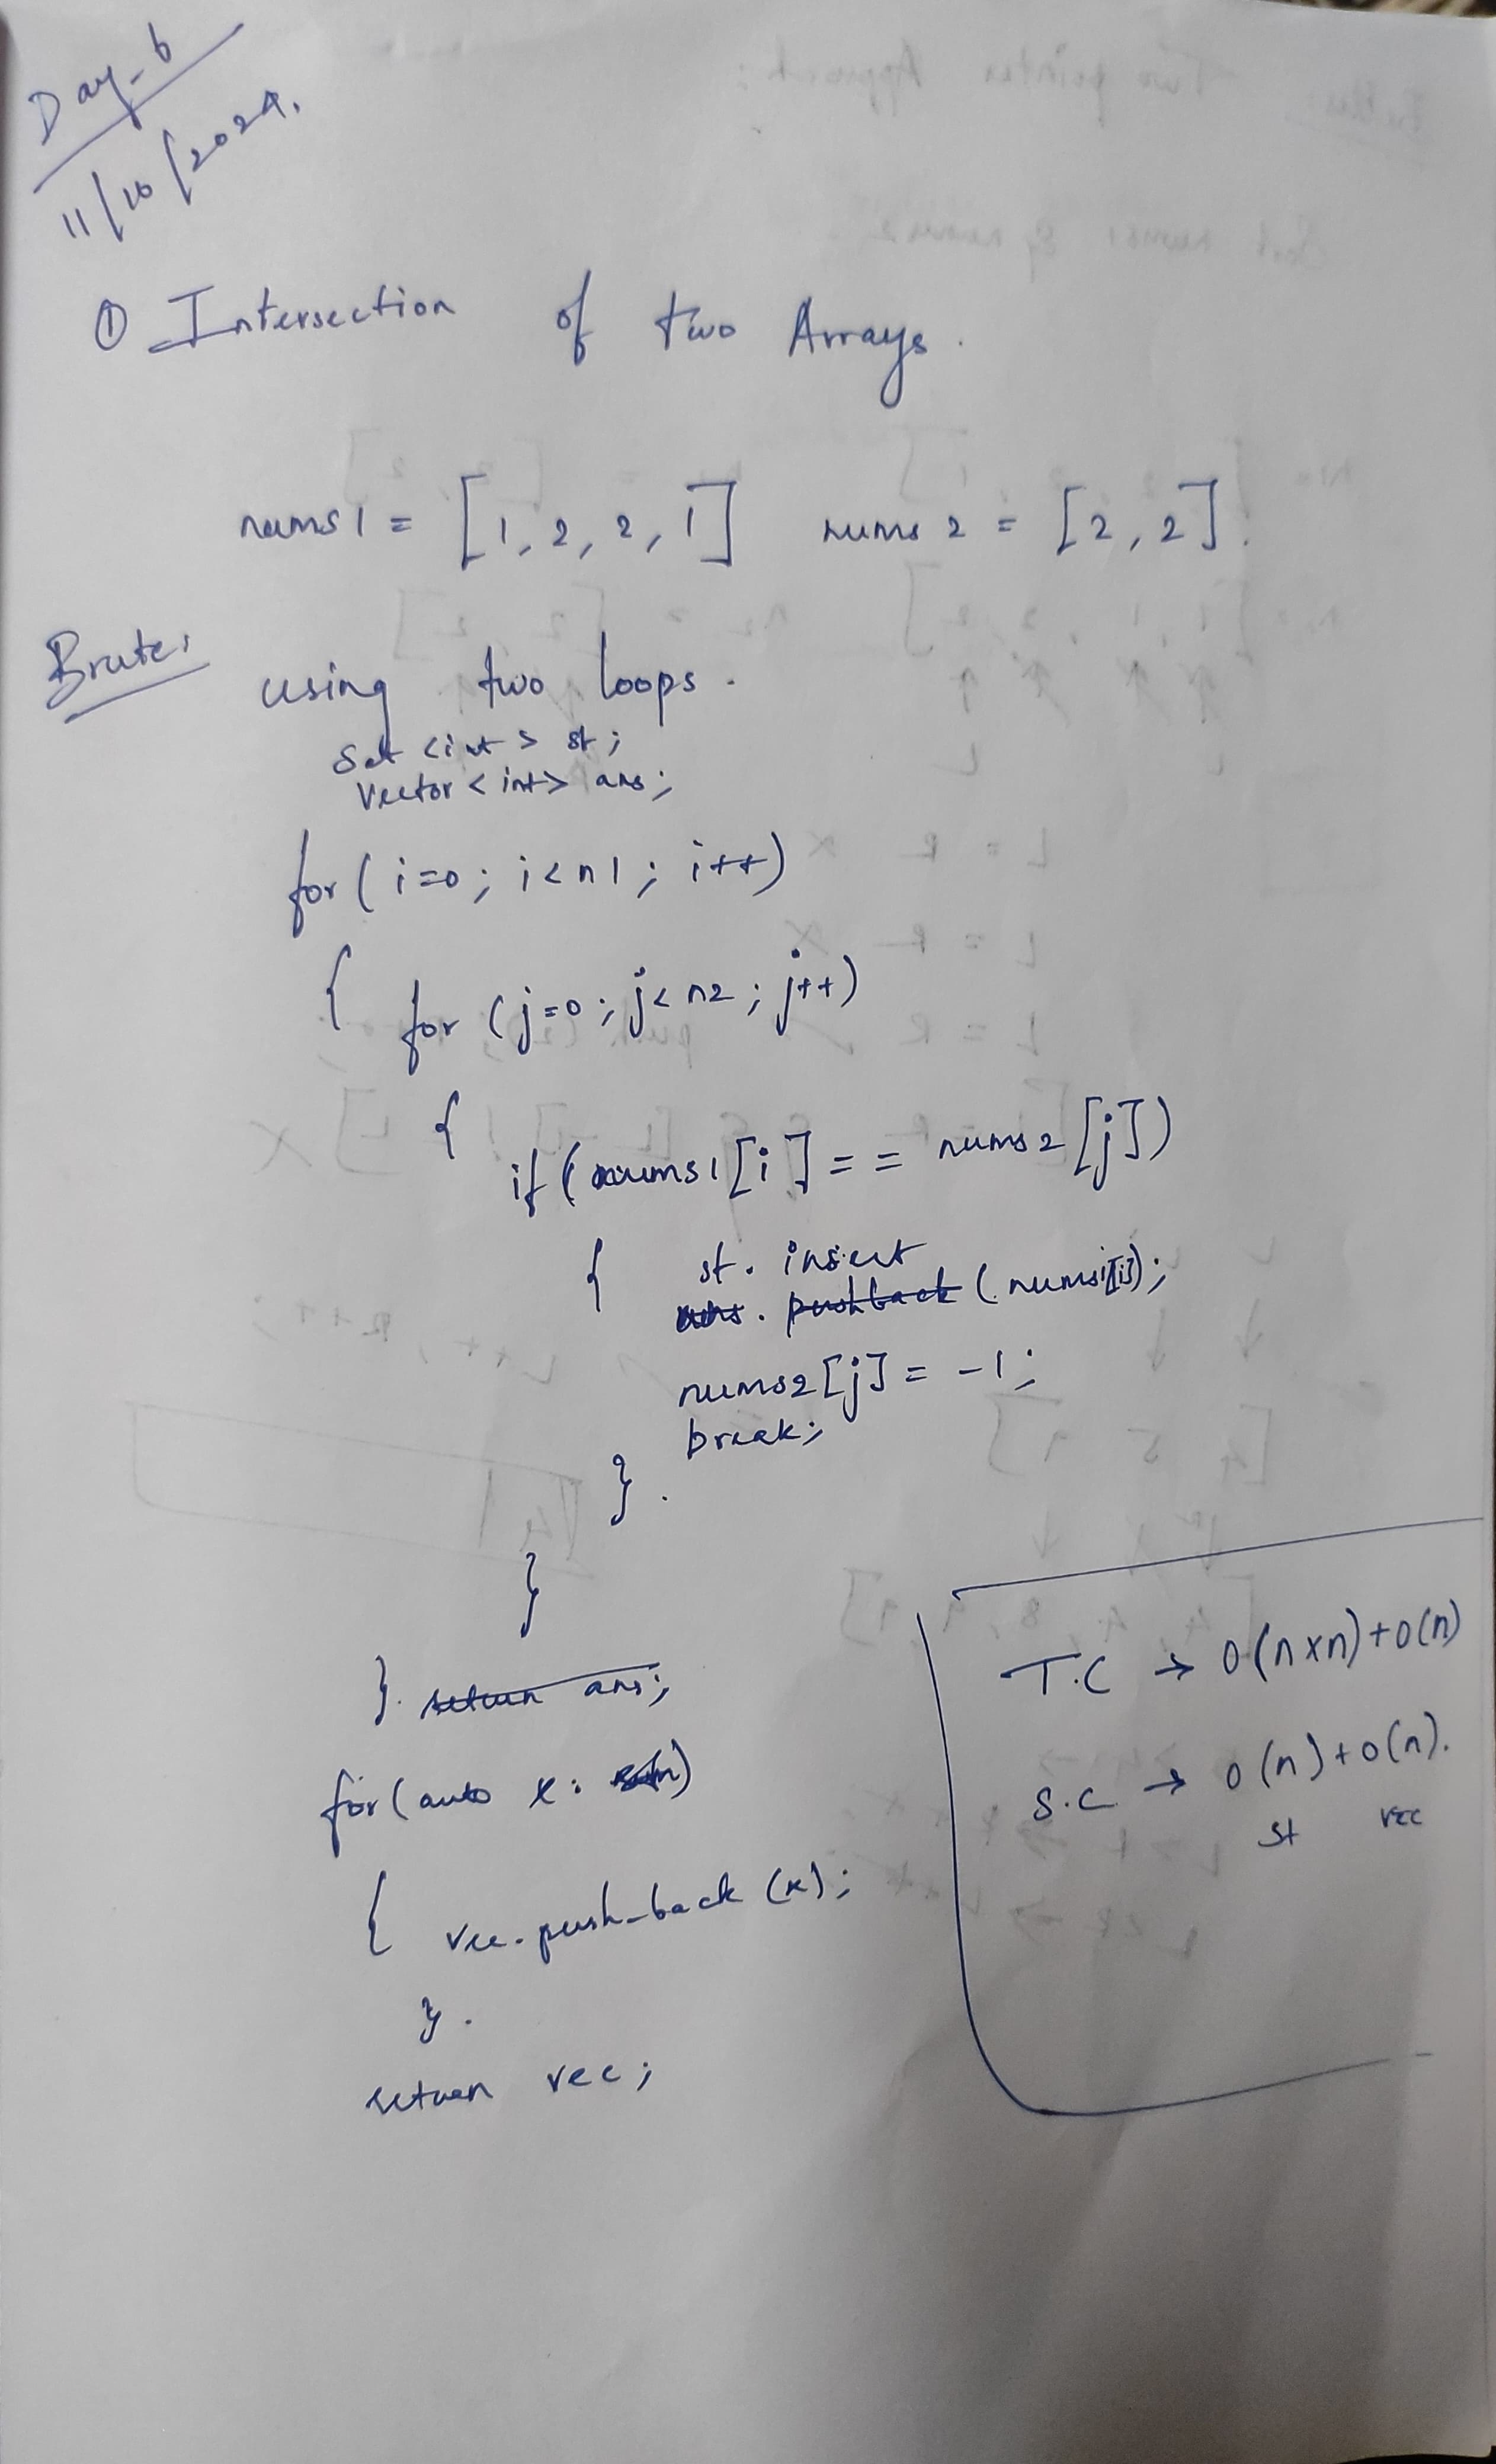 Day-6
11/10/2024.
① Intersection of two Arrays.
nums1 = [1, 2, 2, 1] nums2 = [2, 2].
Brute:
using two loops.
Set <int> st;
Vector <int> ans;
for (i=0; i<n1; i++)
{ for (j=0; j<n2; j++)
{
if (nums1[i] == nums2[j])
{ st. insert
ans. pushback (nums1[i]);
nums2[j] = -1;
break;
}.
}
}. return ans;
for (auto x:
{ vec.push_back (x);
}.
return vec;
T.C → O(n×n)+O(n)
S.C → O(n)+O(n).
st vec